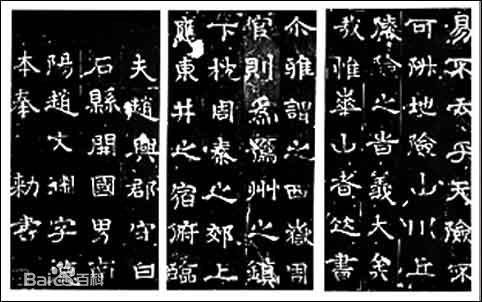 易不云乎天險不
可升地險山川丘
陵險之旹義大矣
哉惟華山者書
尒雅謂之西嶽周
官則為豫州之鎮
下枕周秦之郊上
應東井之宿俯臨
夫趙興郡守白
石縣開國男南
陽趙文淵字德
本奉 勑書
Baidu百科